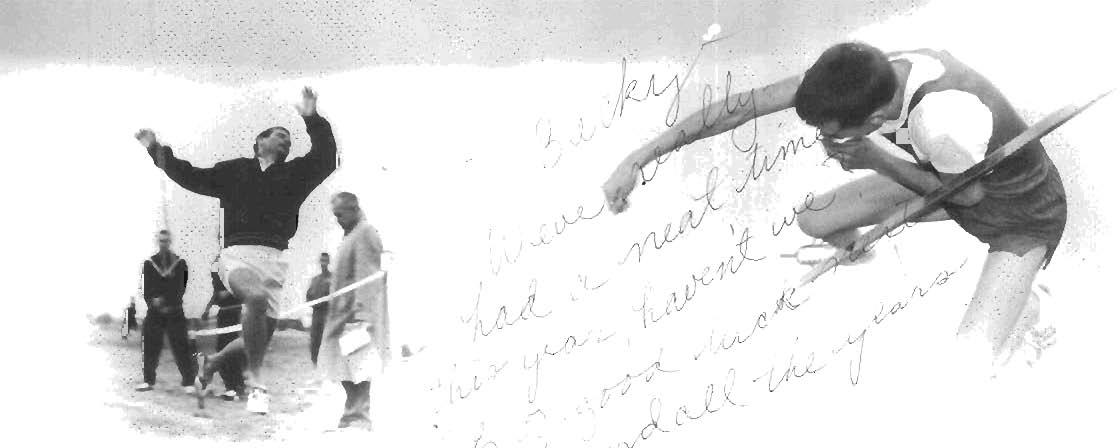 Becky
Weve really
had a neat time
this year, haven't we
good luck next
and all the years